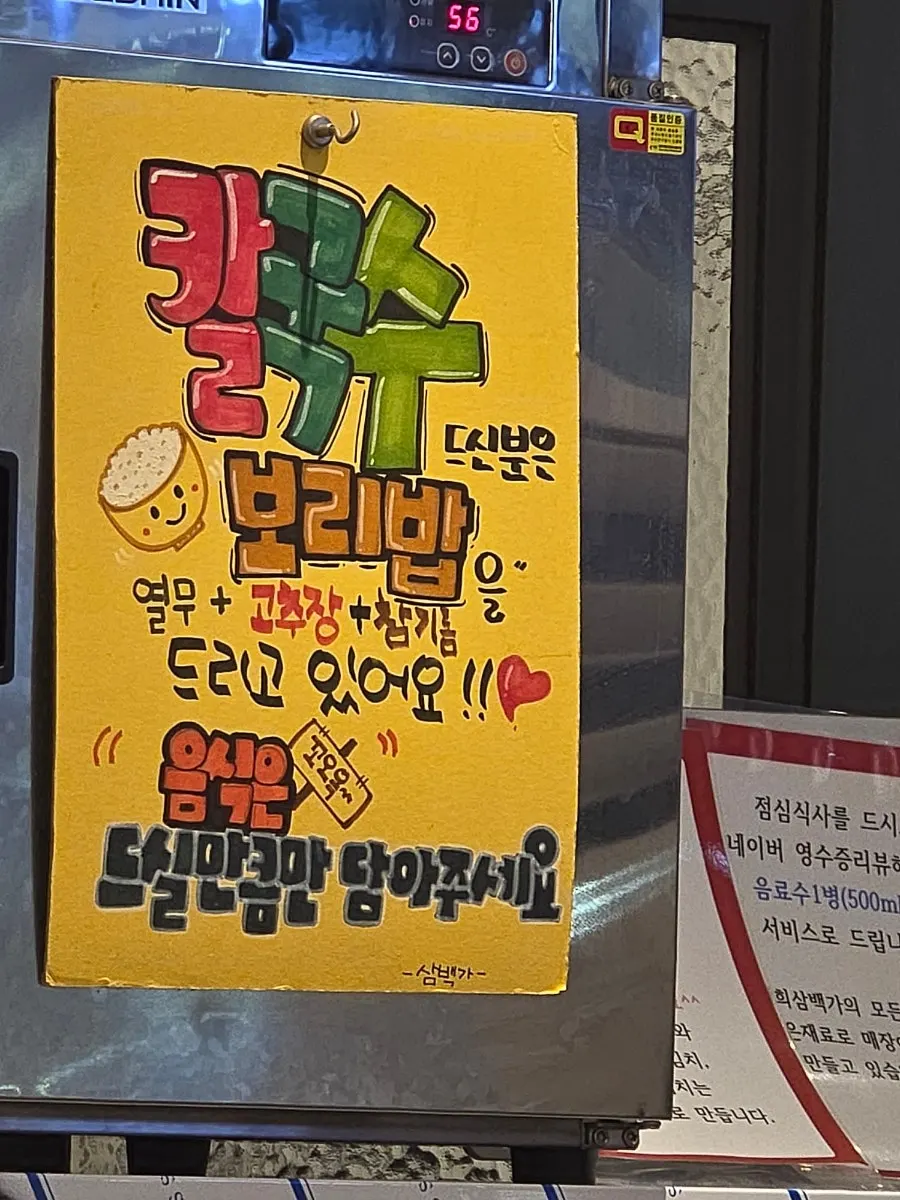 56
품질인증
칼국수
드신분은
보리밥을
열무 + 고추장 + 참기름
드리고 있어요!!
음식은
드실만큼만 담아주세요
-삼백가-
점심식사를 드시
네이버 영수증리뷰
음료수1병(500ml
서비스로 드립니
희삼백가의 모든
은재료로 매장
만들고 있습
로 만듭니다.